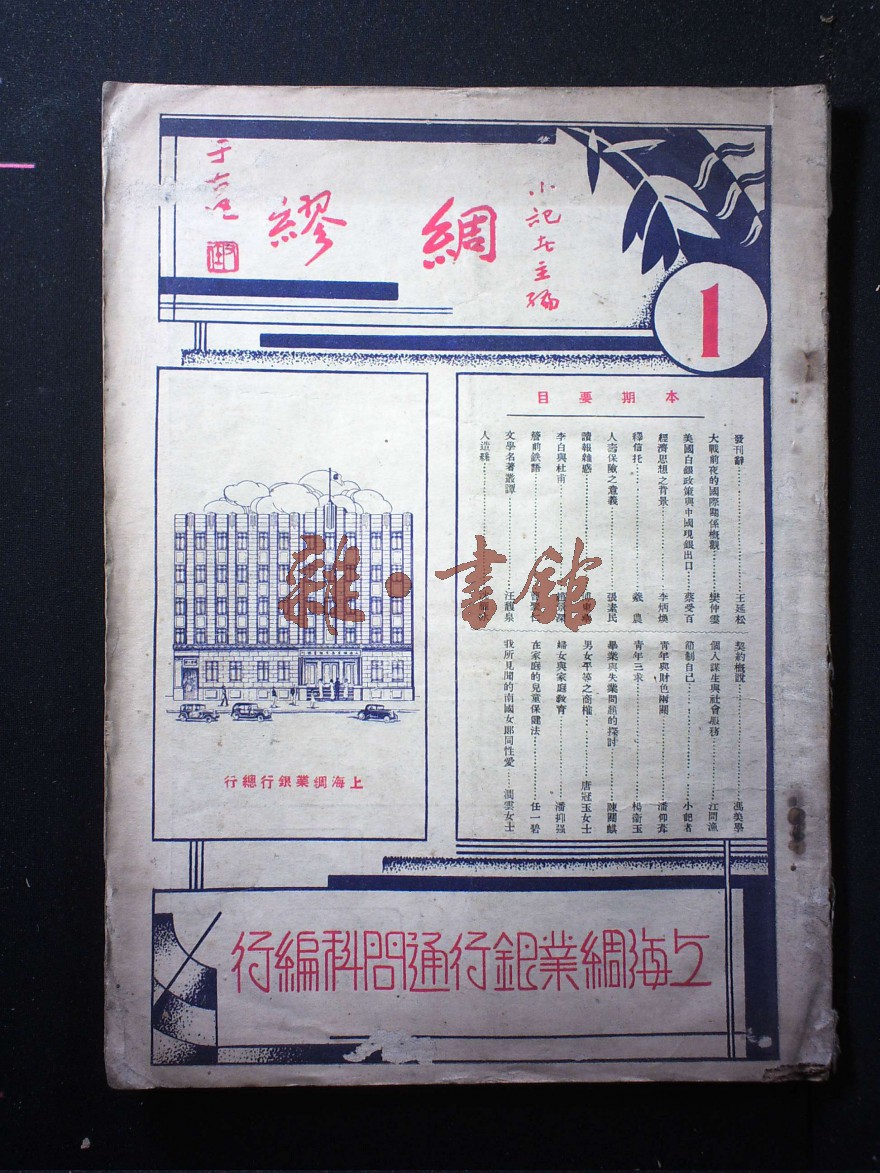 綢繆
小記者主編
于右任
1
本期要目
發刊辭 王延松
大戰前夜的國際關係概觀 樊仲雲
美國白銀政策與中國現銀出口 蔡受百
經濟思想之背景 李炳煥
釋信托 羲農
人壽保險之意義 張素民
讀報雜感
李白與杜甫
營前鉄語
文學名著叢譚 汪馥泉
人造絲
契約概說 馮美學
個人謀生與社會服務 江問漁
節制自己 小記者
青年與財色兩關 潘仰堯
青年三求 楊衛玉
畢業與失業問題的探討 陳國麟
男女平等之商榷 唐冠玉女士
婦女與家庭教育 潘抑强
在家庭的兒童保健法 任一碧
我所見聞的南國女郎同性愛 潤雲女士
上海綢業銀行總行
雜·書館
上海綢業銀行通問科編行